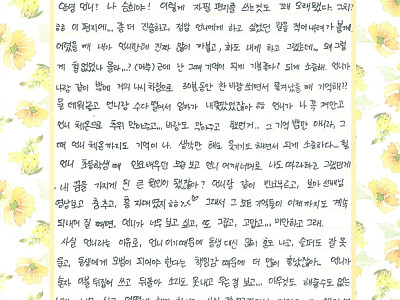 안녕 언니! 나 슬비야! 이렇게 자필 편지를 쓰는것도 꽤 오래됐다. 그치?
이 편지에... 좀 더 진솔하고, 정말 언니에게 하고 싶었던 말을 적어내려가 볼게.
어렸을 때 내가 언니한테 진짜 많이 까불고, 화도 내게 하고 그랬는데... 왜 그렇
게 철없었나 몰라...? (머쓱) 근데 난 그때 기억이 되게 기분좋다? 되게 소중해. 언니가
나랑 같이 밖에 거의 나시 차림으로 30분동안 찬 바람 쐬면서 쫓겨났을 때 기억해??
뭘 떼워놓고 언니랑 수다 떨어서 엄마가 내쫓았었잖아 ㅎㅎ 언니가 나 꼭 껴안고
언니 체온으로 녹여 안아주고... 바람도 막아주고 했던거.. 그 기억 뿐만 아니라, 그
때 언니 체온까지도 기억이 나. 생각만 해도 웃기기도 하면서 되게 소중하다... 힝
언니 중등학생 때 언니 보고 언니 여깨너머로 나도 따라하고 그랬던게
내 꿈을 가지게 된 큰 원인이 됐잖아? 언니랑 같이 보면서
영상보고 춤추고, 그래서 그 모든 기억들이 이제까지도 계속
되내어 질 때면, 언니가 너무 보고 싶고, 또 그립고, 고맙고... 미안하고 그래.
사실 언니라는 이유로, 언니이기 때문에 동생 대신 많이 혼도 나고, 슬퍼도 잘 못
울고, 동생에게 모범이 되어야 한다는 책임감 때문에 더 많이 혼났잖아. 언니가
혼자 이불 뒤집어 쓰고 뒤돌아 소리도 못내고 우는 걸 보고... 아무것도 해줄수도 없는